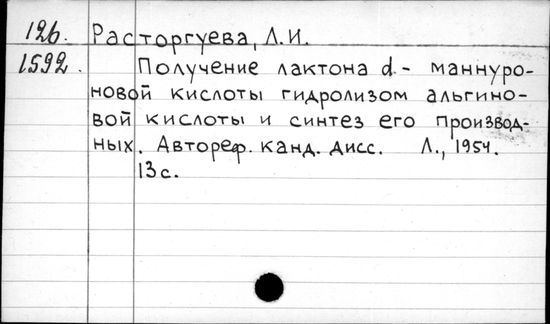 126. Расторгуева, Л.И.
1592. Получение лактона d - маннуро-
новой кислоты гидролизом альгино-
вой кислоты и синтез его производ-
ных. Автореф. канд. дисс. Л., 1954.
13 с.